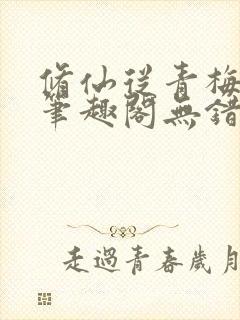 脩仙從青梅
筆趣閣無錯
走過青春歲月